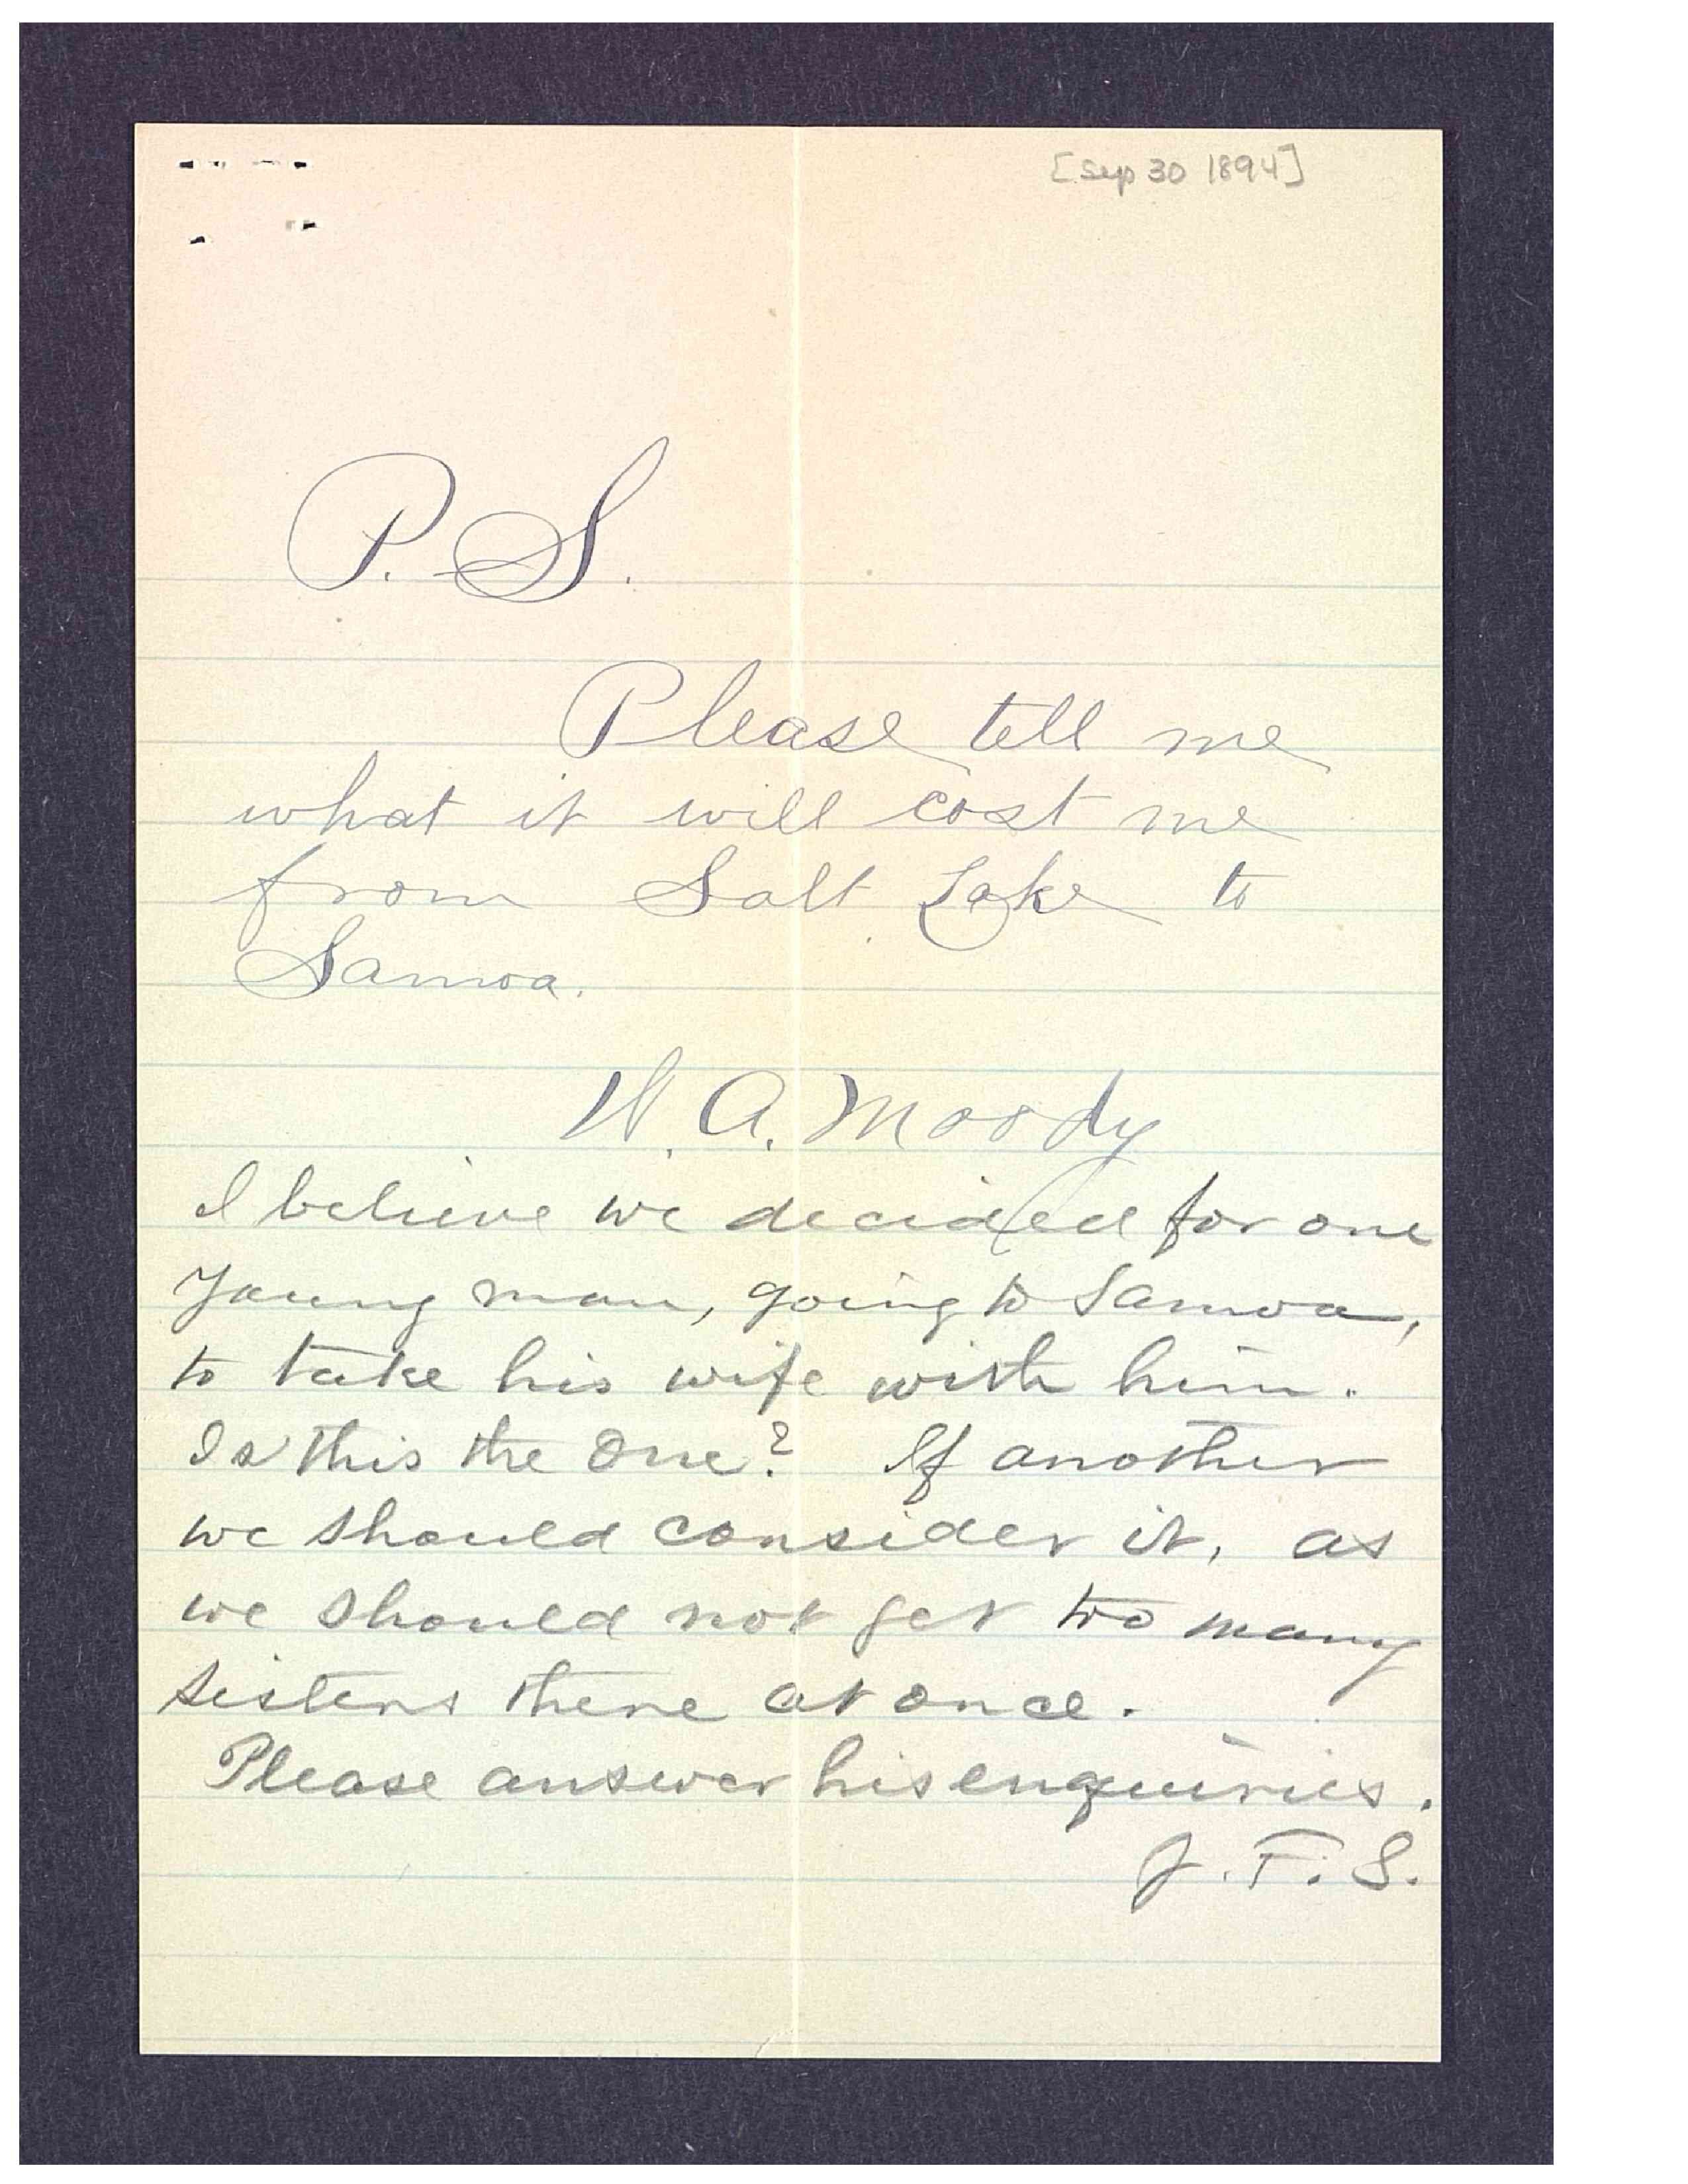 [Sep 30 1894]
P.S.
Please tell me
what it will cost me
from Salt Lake to
Samoa.
W. A. Moody
I believe we decided for one
young man, going to Samoa,
to take his wife with him.
Is this the one? If another
we should consider it, as
we should not get too many
sisters there at once.
Please answer his enquiries.
J. F. S.